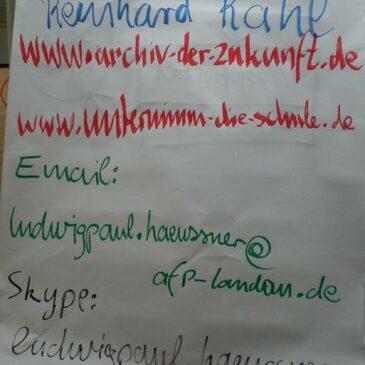 Reinhard Kahl
www.archiv-der-zukunft.de
www.unternimm-die-schule.de
Email:
ludwigpaul.haeussner@
afp-landau.de
Skype:
ludwigpaul.haeussn